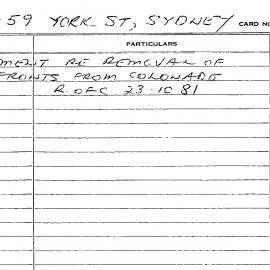 59 YORK ST, SYDNEY CARD NO
PARTICULARS
MENT RE REMOVAL OF
FRONTS FROM COLONADE
R OF C 23.10 81